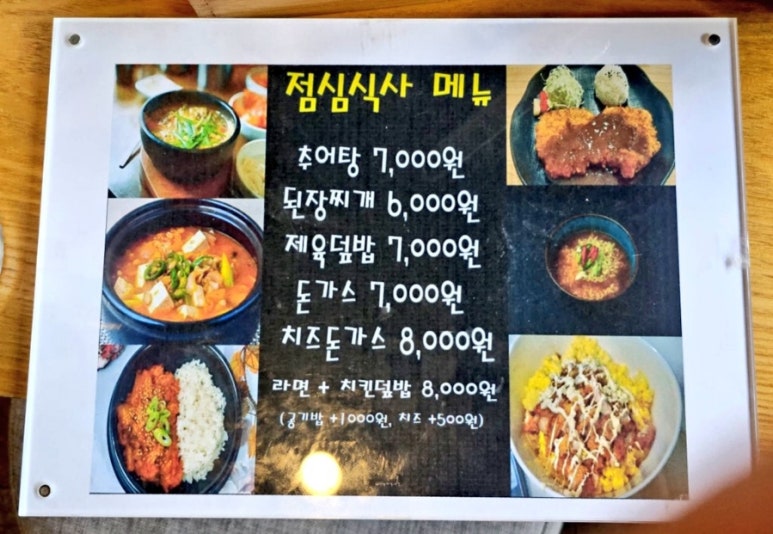 점심식사 메뉴
추어탕 7,000원
된장찌개 6,000원
제육덮밥 7,000원
돈가스 7,000원
치즈돈가스 8,000원
라면 + 치킨덮밥 8,000원
(공기밥 +1000원, 치즈 +500원)